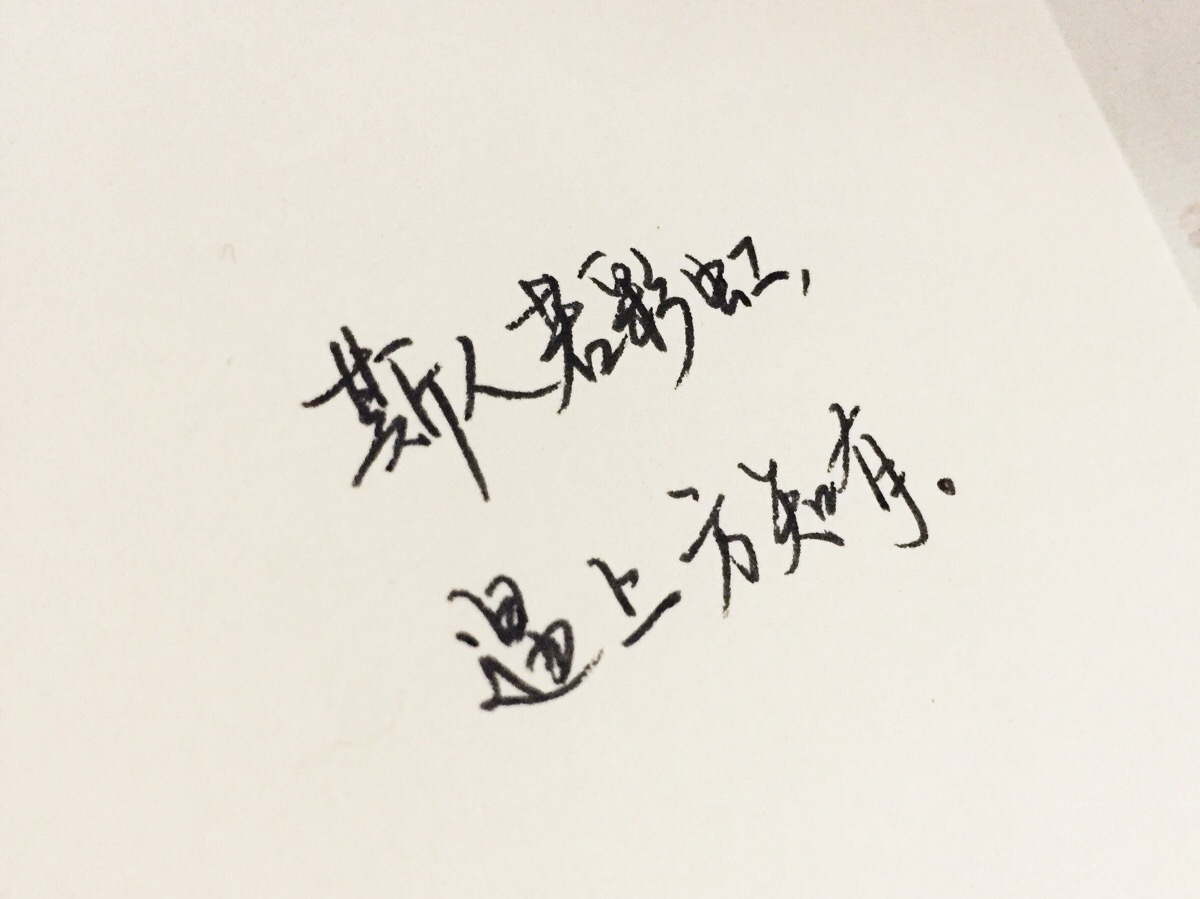 斯人若彩虹，
遇上方知有.